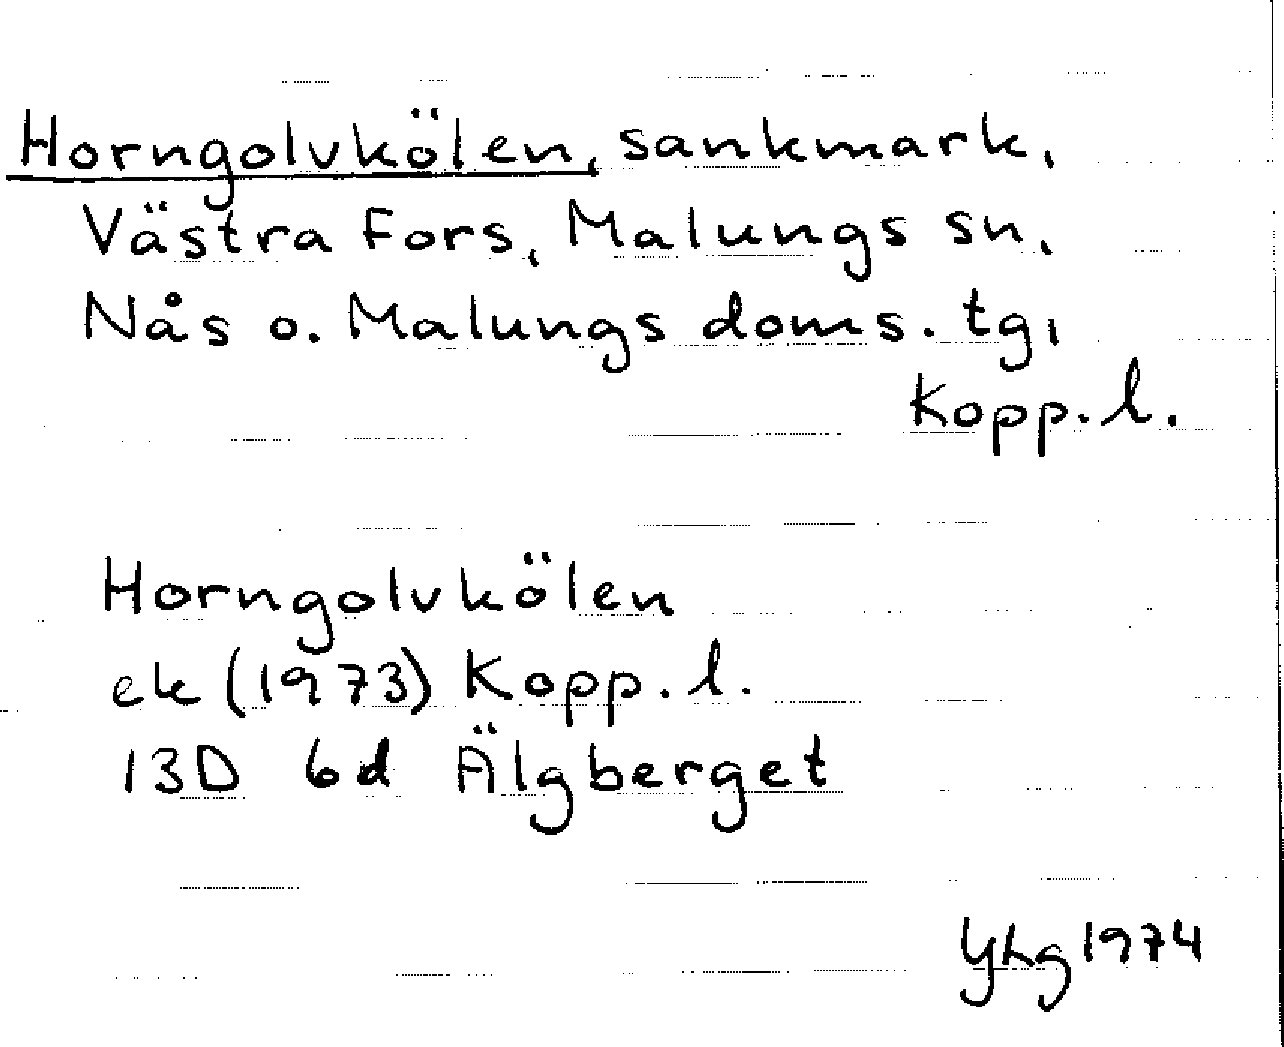 Horngolvkölen, sankmark,
Västra Fors, Malungs sn,
Nås o. Malungs doms. tg,
Kopp. l.
Horngolvkölen
ek (1973) Kopp. l.
13D 6d Älgberget
YLg 1974